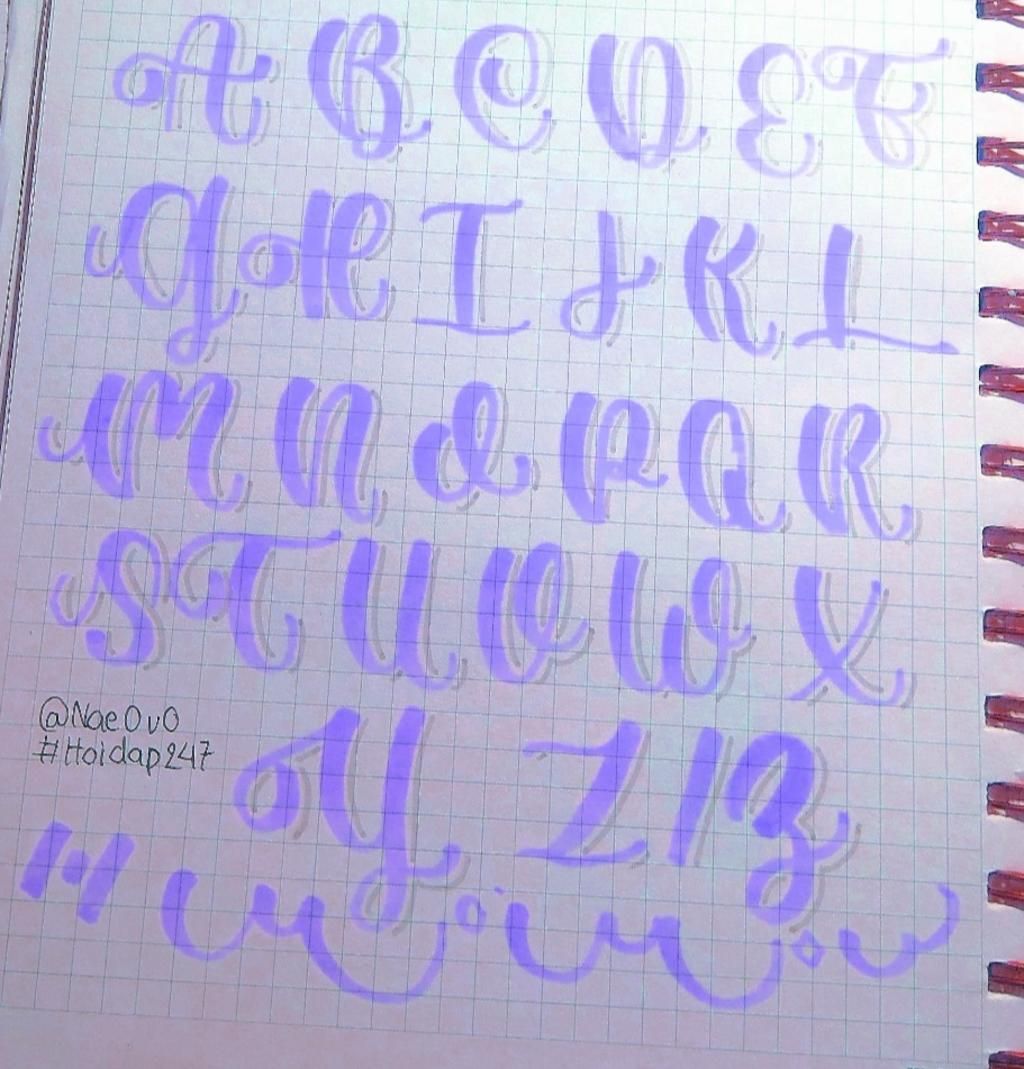 A B C D E F
G H I J K L
M N O P Q R
S T U V W X
@NaeOvO
#Hoidap247
Y Z / Z